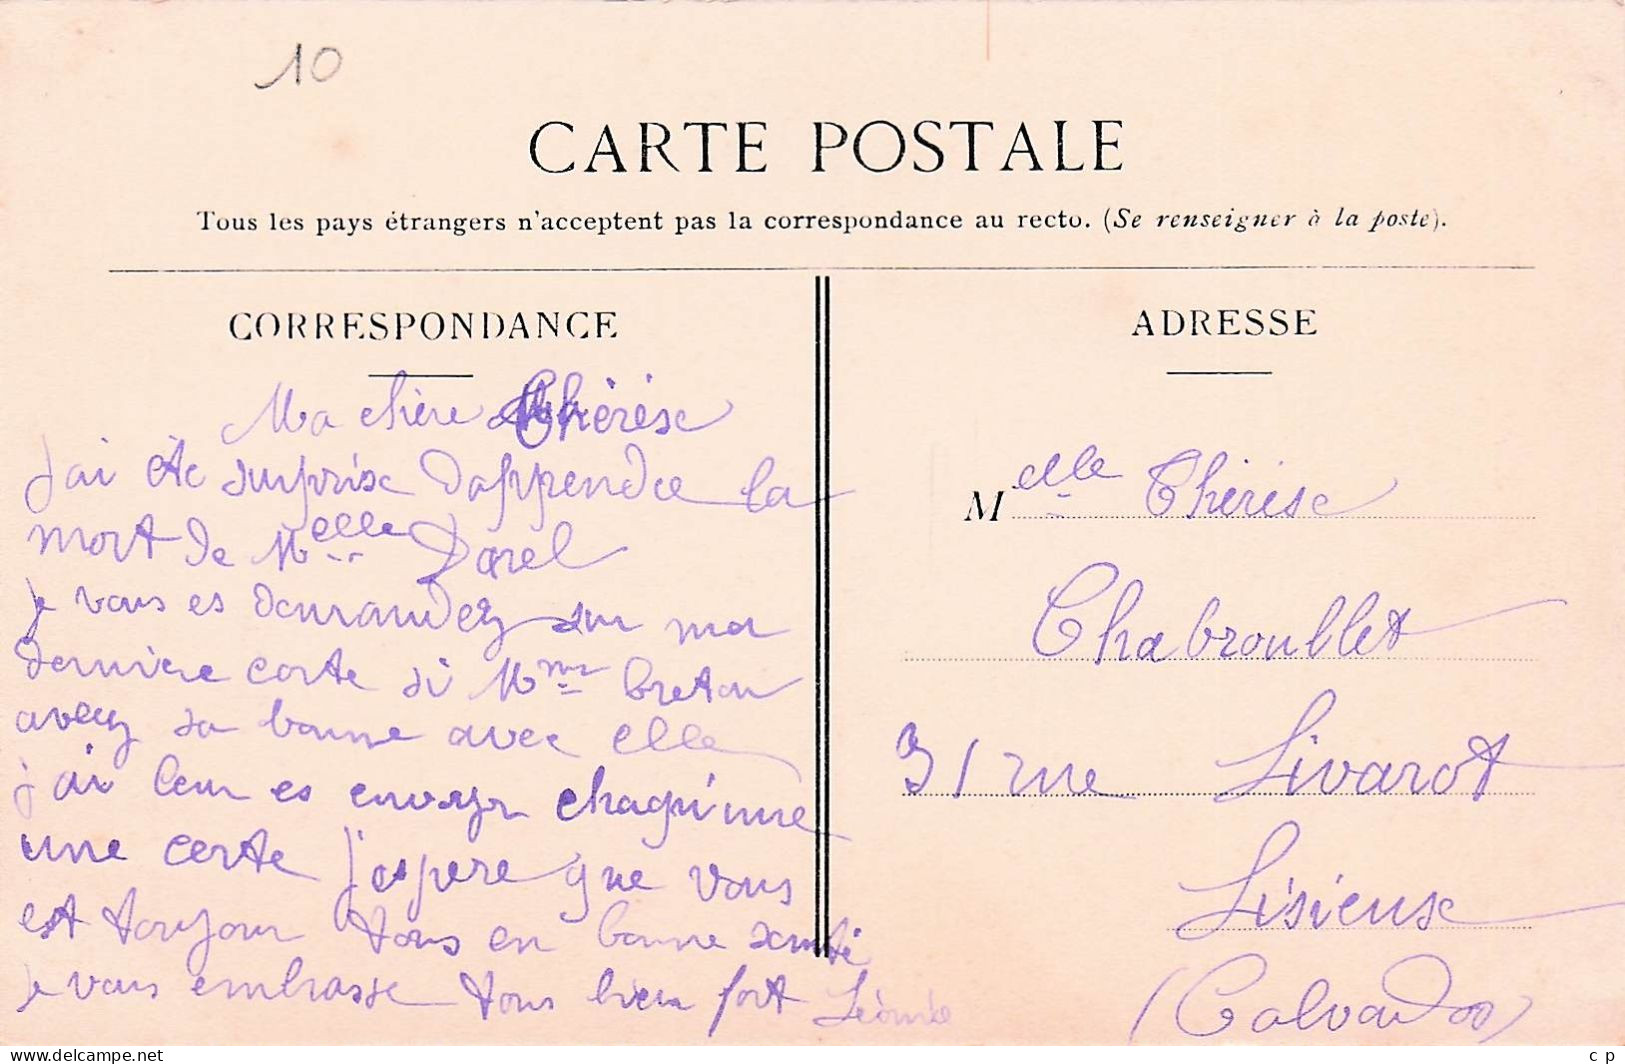 10
CARTE POSTALE
Tous les pays étrangers n'acceptent pas la correspondance au recto. (Se renseigner à la poste).
CORRESPONDANCE
Ma chère Thérèse
J'ai éte surprise d'apprendre la
mort de Melle Darel
je vous es demandez sur ma
dernière carte si Mme breton
avez sa bonne avec elle
j'ai leur es envoyer chaqu'une
une carte j'espere que vous
est toujour tous en bonne santé
je vous embrasse tous bien fort Léonie
ADRESSE
Melle Thérèse
Chabroullet
31 rue Livarot
Lisieux
(Calvados)
c p
www.delcampe.net